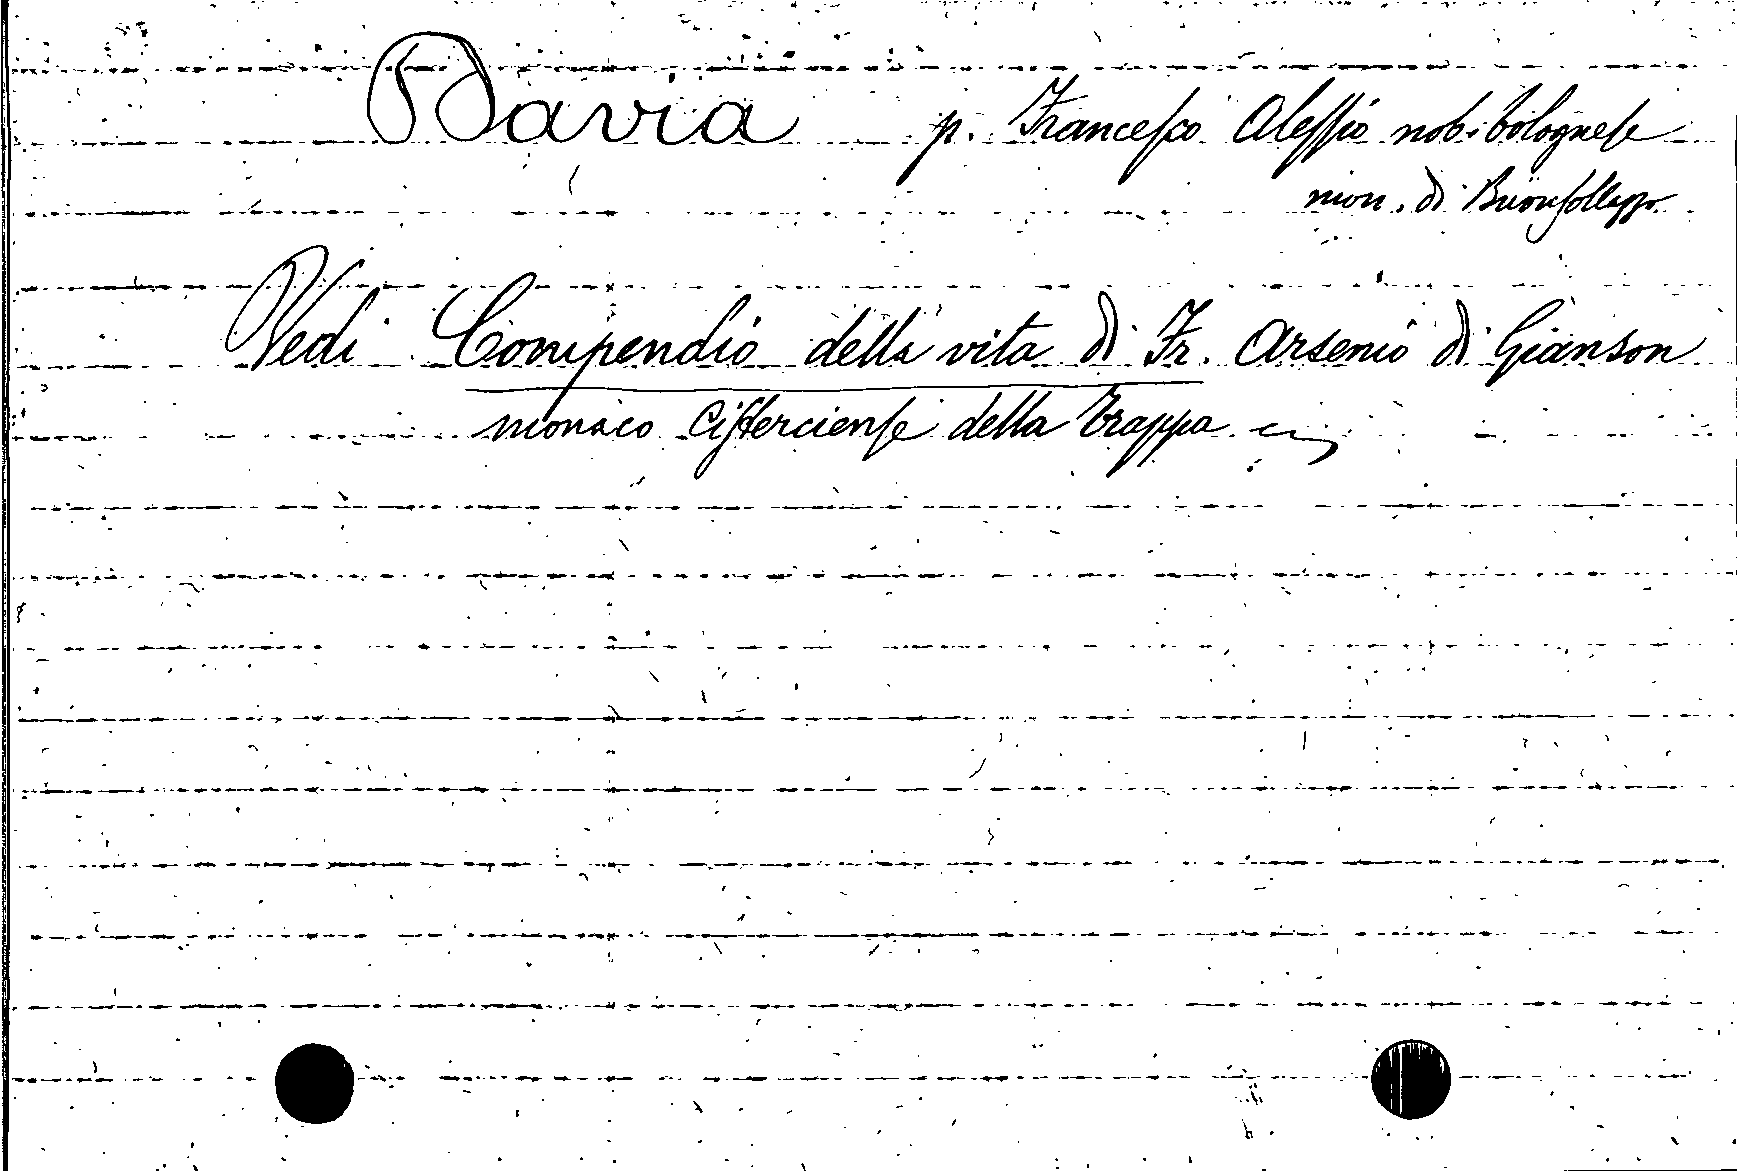 Davia p. Francesco Alessio nob. bolognese
mon. di Buonsollazzo
Vedi Compendio della vita di Fr. Arsenio di Gianson
monaco Cisterciense della Trappa